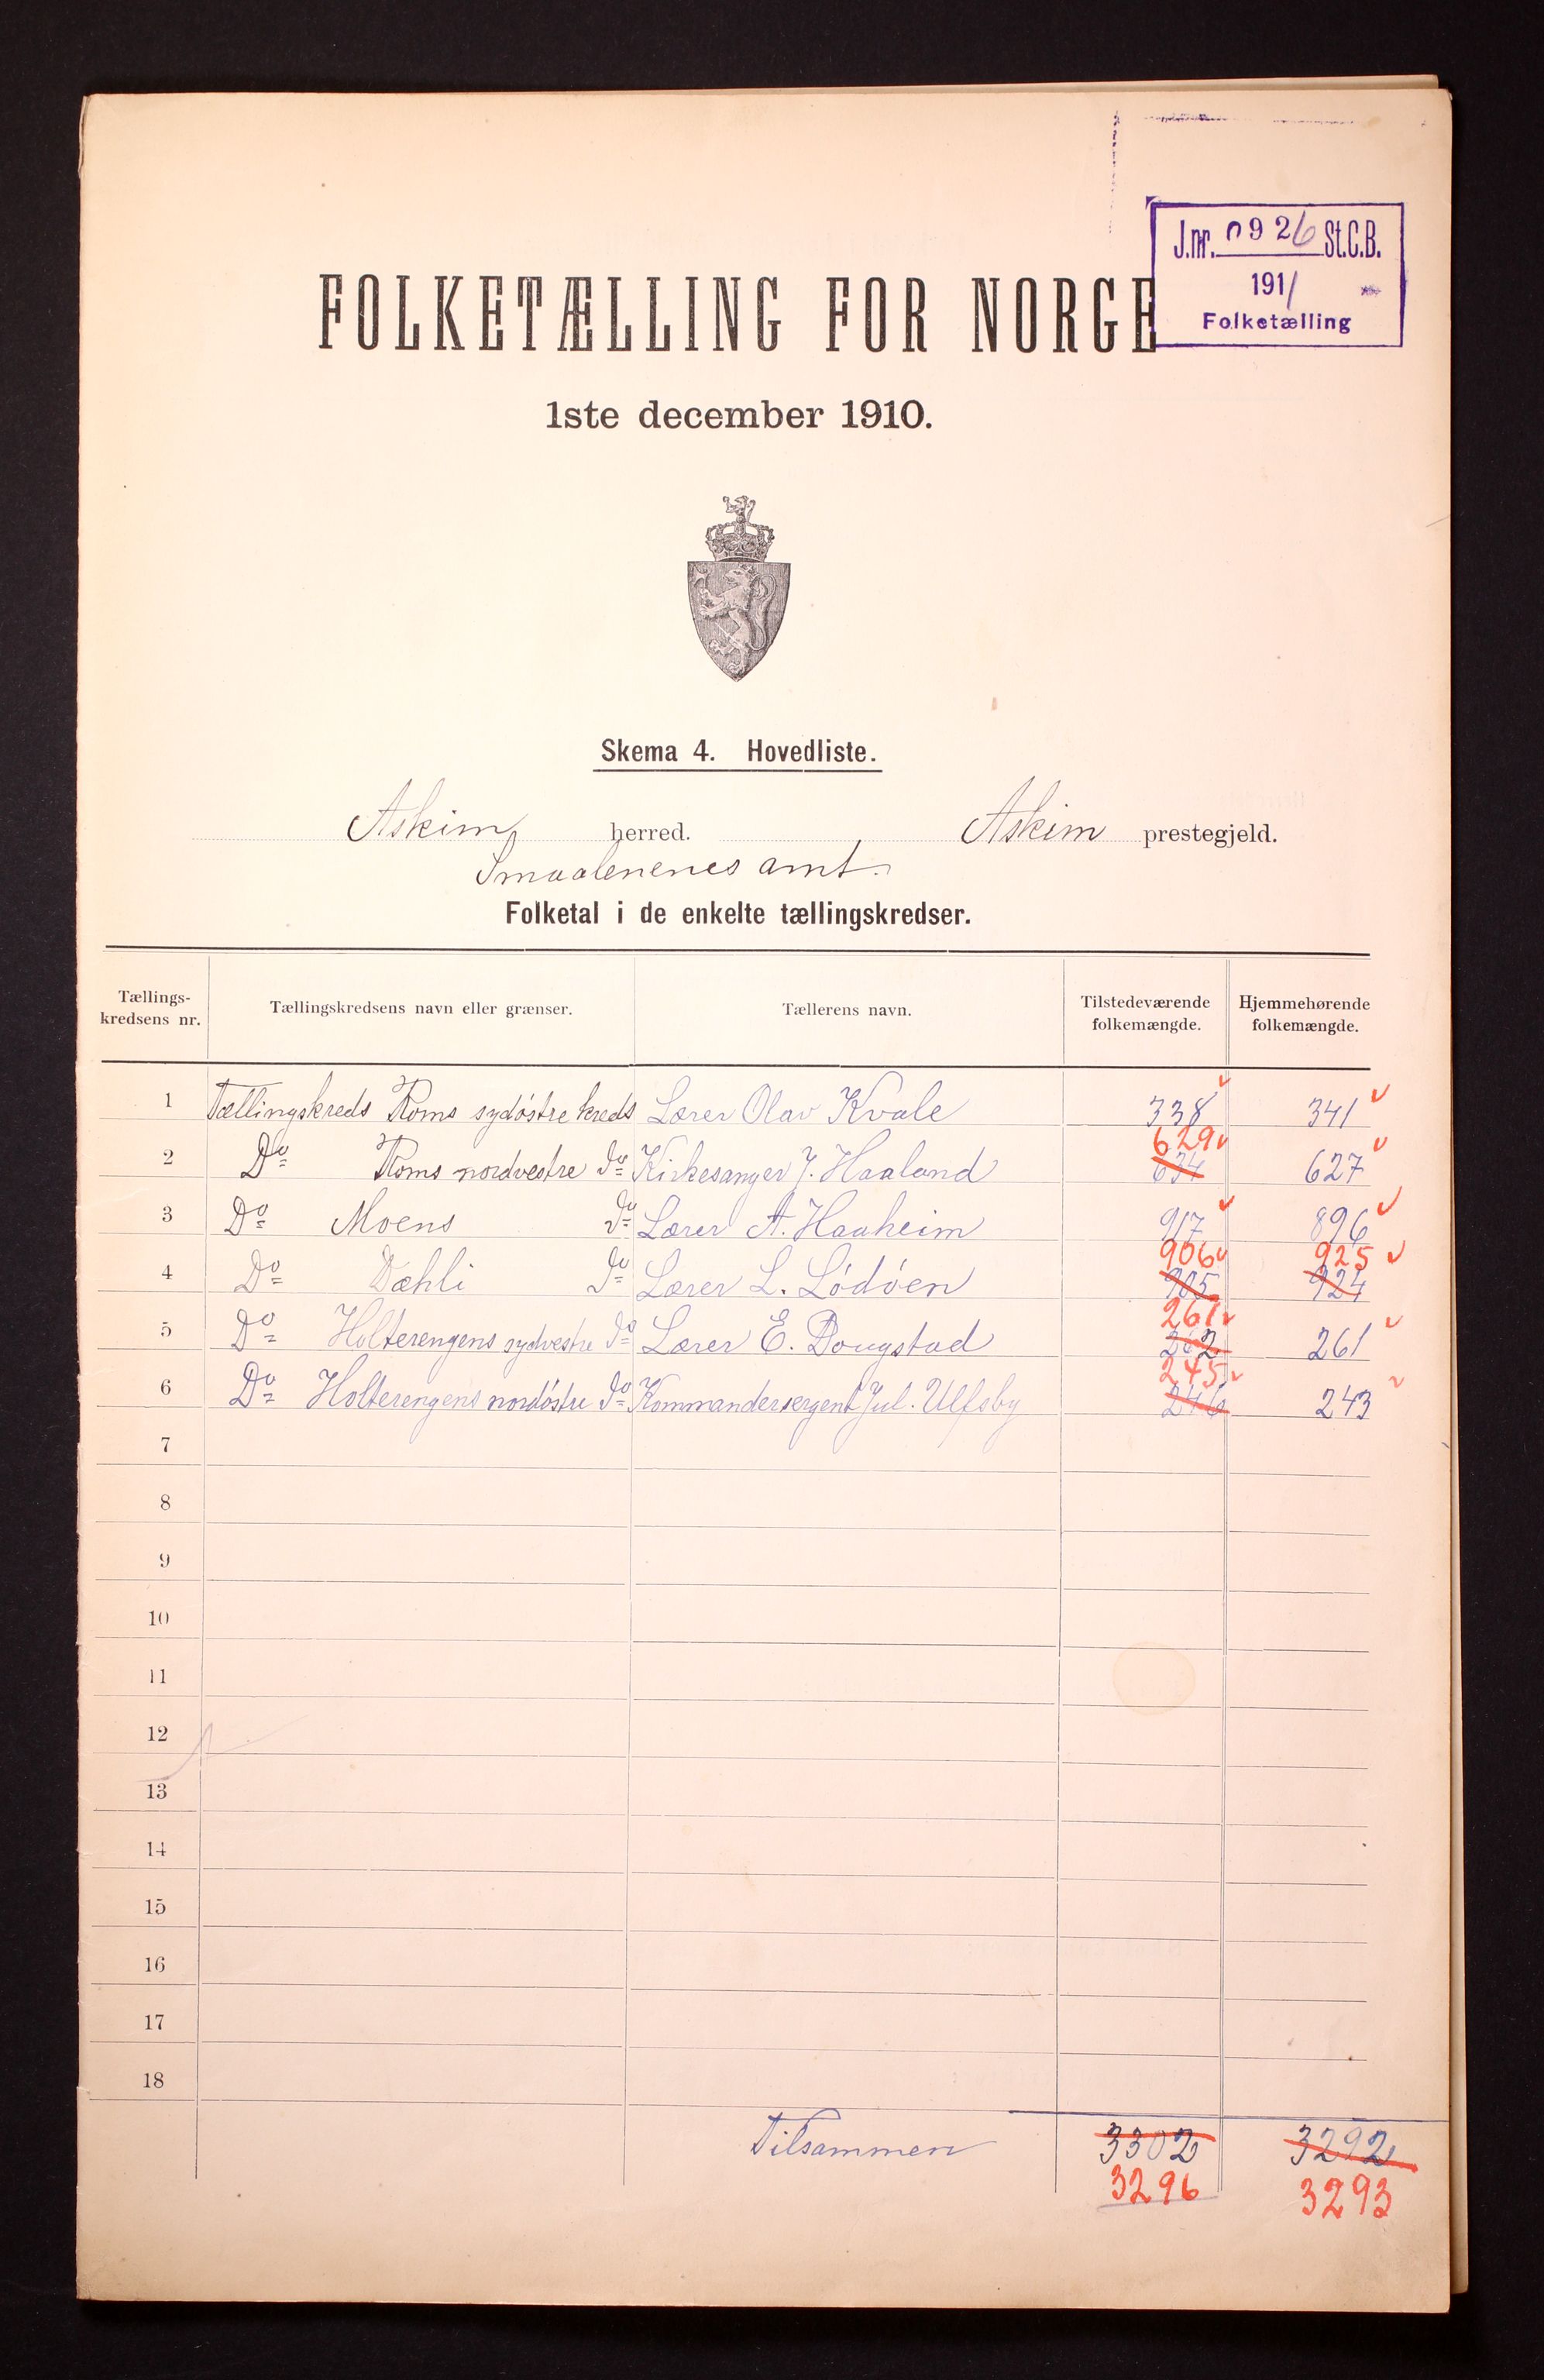 J.nr. 0926 St.C.B.
1911
Folketælling
FOLKETÆLLING FOR NORGE
1ste december 1910.
Skema 4. Hovedliste.
Askim herred. Askim prestegjeld.
Smaalenenes amt.
Folketal i de enkelte tællingskredser.
Tællings-kredsens nr. Tællingskredsens navn eller grænser. Tællerens navn. Tilstedeværende folkemængde. Hjemmehørende folkemængde.
1 Tællingskreds Roms sydöstre kreds Lærer Olav Kvale 338 341
629
2 Do Roms nordvestre do Kirkesanger J. Haaland 634 627
3 Do Moens do Lærer A. Haaheim 917 896
906 925
4 Do Dæhli do Lærer L. Lödöen 905 924
261
5 Do Holterengens sydvestre do Lærer E. Dougstad 262 261
245
6 Do Holterengens nordöstre do Kommandersergent Jul. Ulfsby 246 243
7
8
9
10
11
12
13
14
15
16
17
18
Tilsammen 3302 3292
3296 3293